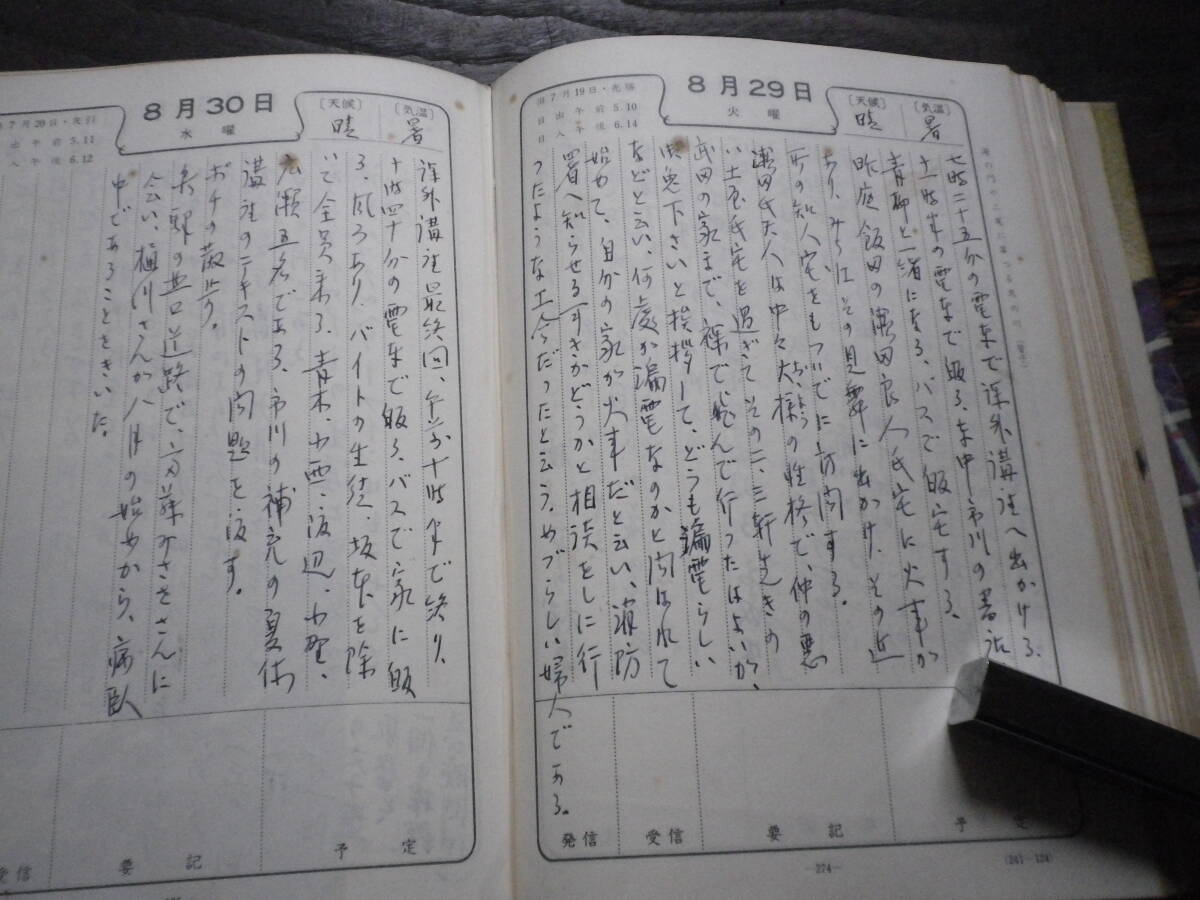 8月29日
火曜
旧7月19日・先勝
日出午前5.10
日入午後6.14
〔天候〕晴
〔気温〕暑
七時二十五分の電車で課外講座へ出かける。
十一時半の電車で帰る。車中市川の
青柳と一緒になる。バスで帰宅する。
昨夜飯田の瀬田良人氏宅に火事が
あり、みちはその見舞に出かけ、その近
所の知人宅をもついでに訪問する。
瀬田氏夫人は中々大様の性格で、仲の悪
い土屋氏宅を過ぎてその二、三軒先きの
武田の家まで、裸で飛んで行ったはよいが、
御免下さいと挨拶して、どうも漏電らしい
などと云い、何處が漏電なのかと問はれて
始めて、自分の家が火事だと云い、消防
署へ知らせる可きかどうかと相談をしに行
つたような工合だったと云う。めづらしい婦人である。
発信
受信
要記
予定
―274―
(241―124)
8月30日
水曜
7月20日・友引
出午前5.11
入午後6.12
〔天候〕晴
〔気温〕暑
課外講座最終回、午前十時半で終り、
十時四十分の電車で帰る、バスで家に帰
る、風呂あり、バイトの生徒、坂本を除
いて全員来る、青木、小西、渡辺、小野、
広瀬五名である、市川の補充の夏休
講座のテキストの問題を渡す。
ポチの散歩。
矢野の井口道路で、斎藤みささんに
会い、植川さんが八月の始めから、病臥
中であることをきいた。
受信
要記
予定